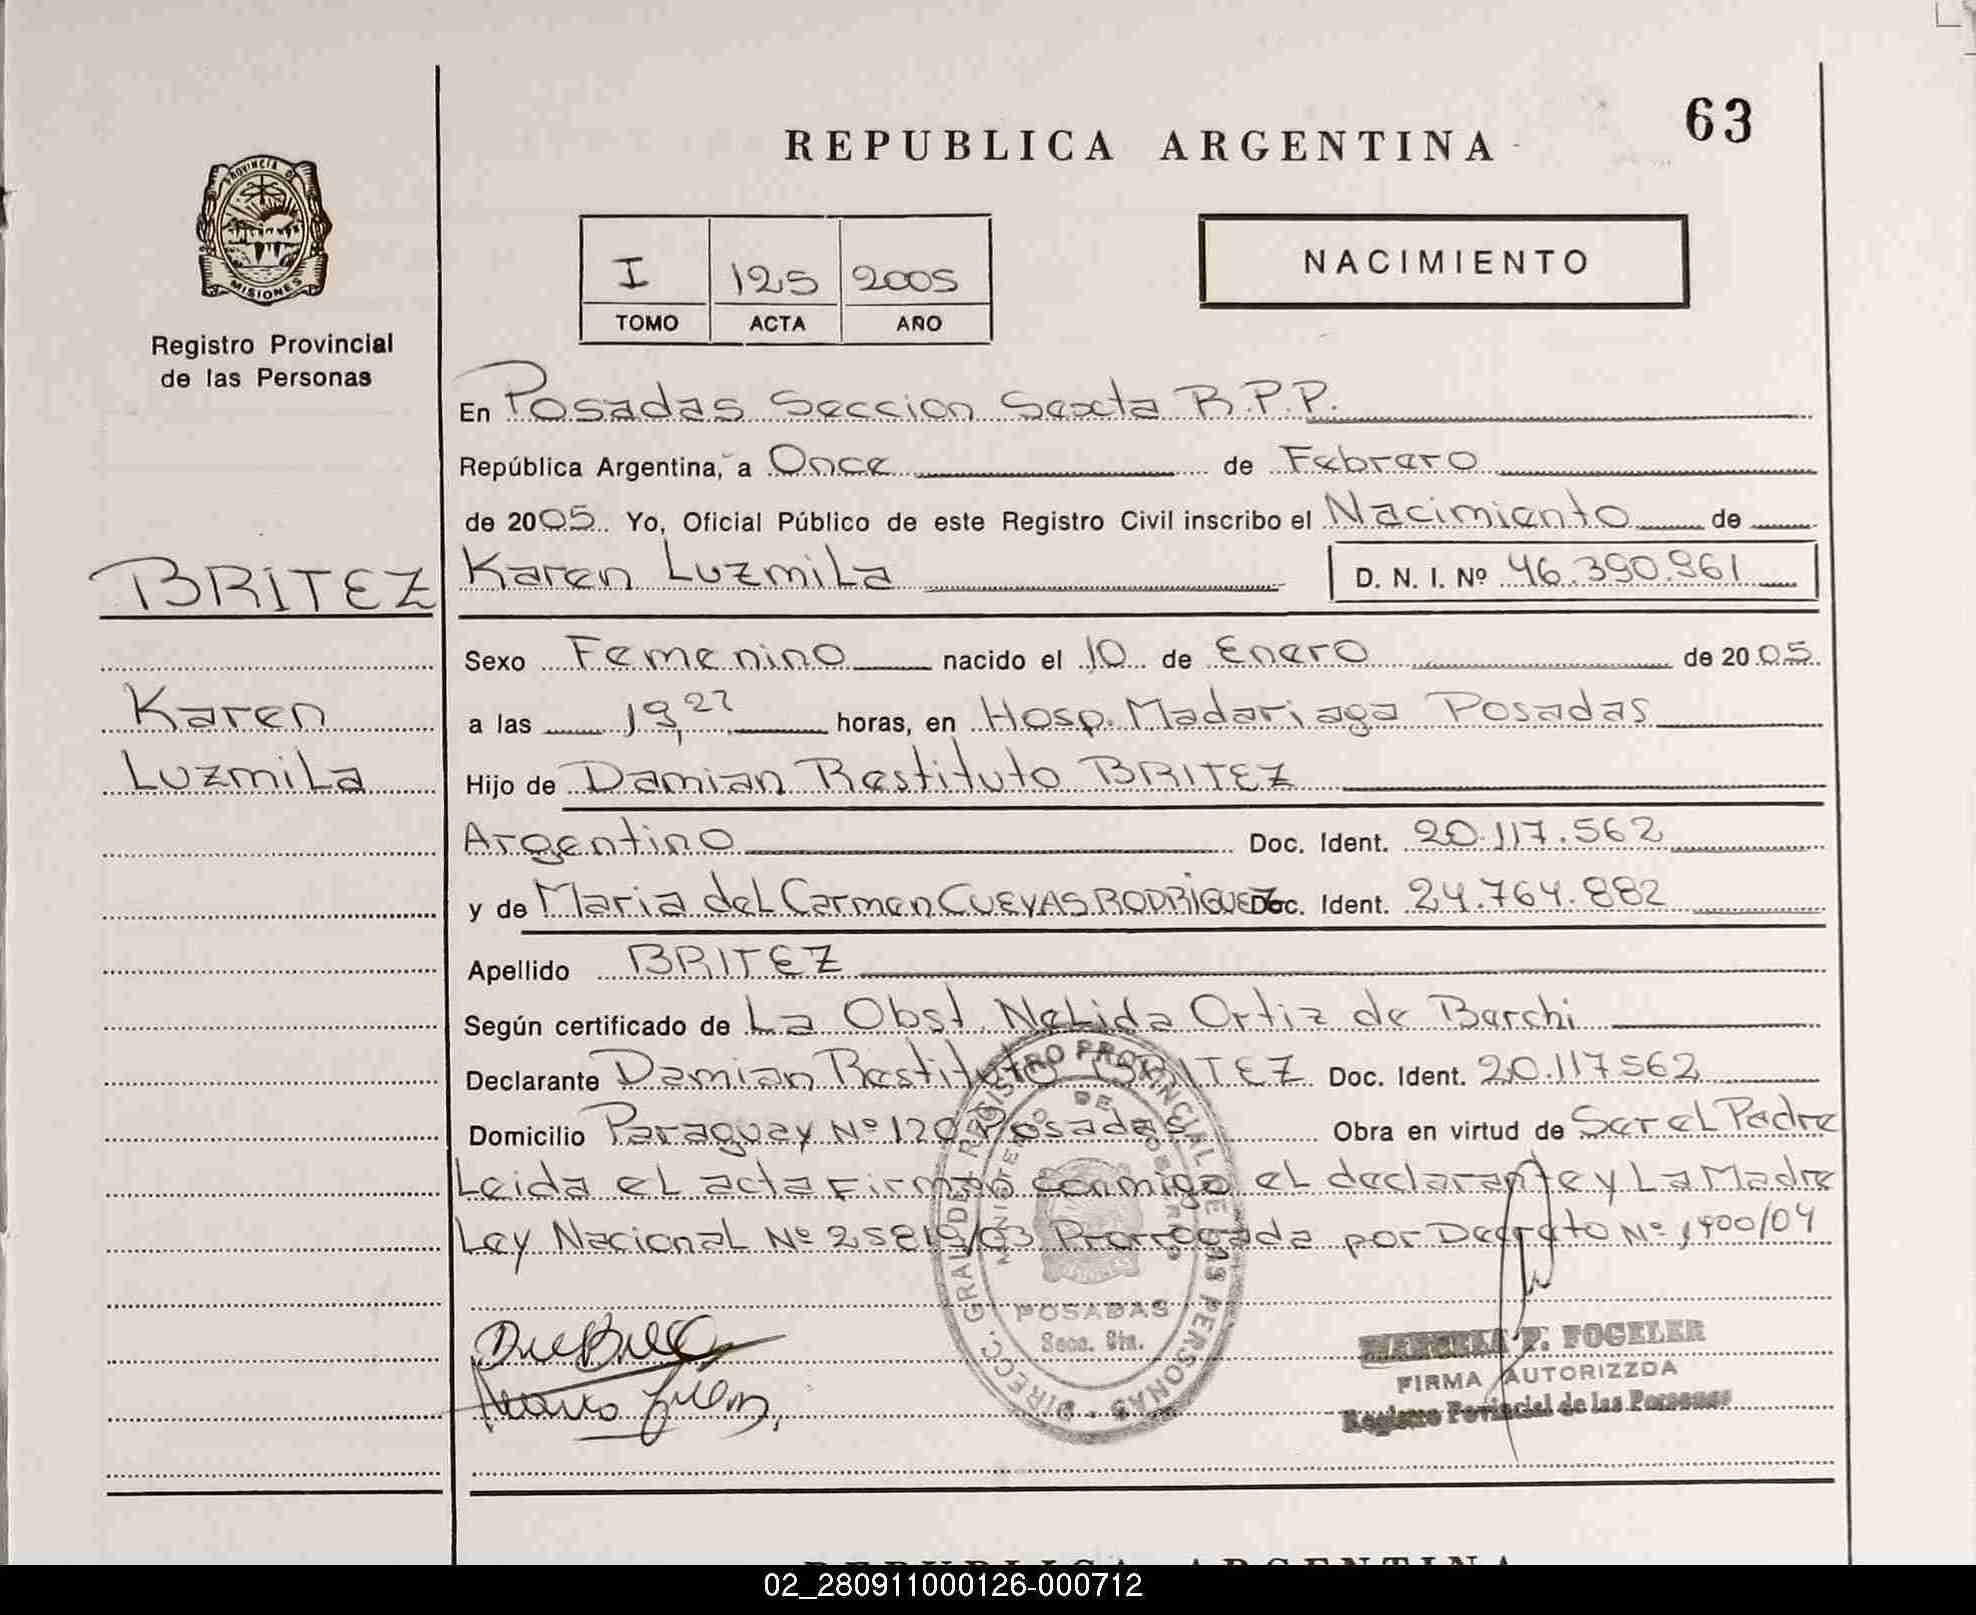 63
REPUBLICA ARGENTINA
PROVINCIA DE
MISIONES
Registro Provincial
de las Personas
I 125 2005
TOMO ACTA AÑO
NACIMIENTO
En Posadas Seccion Sexta R.P.P.
República Argentina, a Once de Febrero
de 2005. Yo, Oficial Público de este Registro Civil inscribo el Nacimiento de
BRITEZ
Karen Luzmila D. N. I. Nº 46.390.961
Sexo Femenino nacido el 10 de Enero de 2005.
Karen
a las 19,27 horas, en Hosp. Madariaga Posadas
Luzmila
Hijo de Damian Restituto BRITEZ
Argentino Doc. Ident. 20.117.562
y de Maria del Carmen CUEVAS RODRIGUEZ Doc. Ident. 24.764.882
Apellido BRITEZ
Según certificado de La Obst. Nelida Ortiz de Barchi
Declarante Damian Restituto BRITEZ Doc. Ident. 20.117562
Domicilio Paraguay Nº Posadas Obra en virtud de Ser el Padre
Leida el acta firman conmigo el declarante y La Madre
Ley Nacional Nº 25819/03 Prorrogada por Decreto Nº 1900/04
DIRECC. GRAL. DEL REGISTRO PROVINCIAL DE LAS PERSONAS
MINISTERIO DE GOBIERNO
POSADAS
Secc. 6ta.
MARCELA P. FOGELER
FIRMA AUTORIZZDA
Registro Povincial de las Personas
REPUBLICA ARGENTINA
02_280911000126-000712